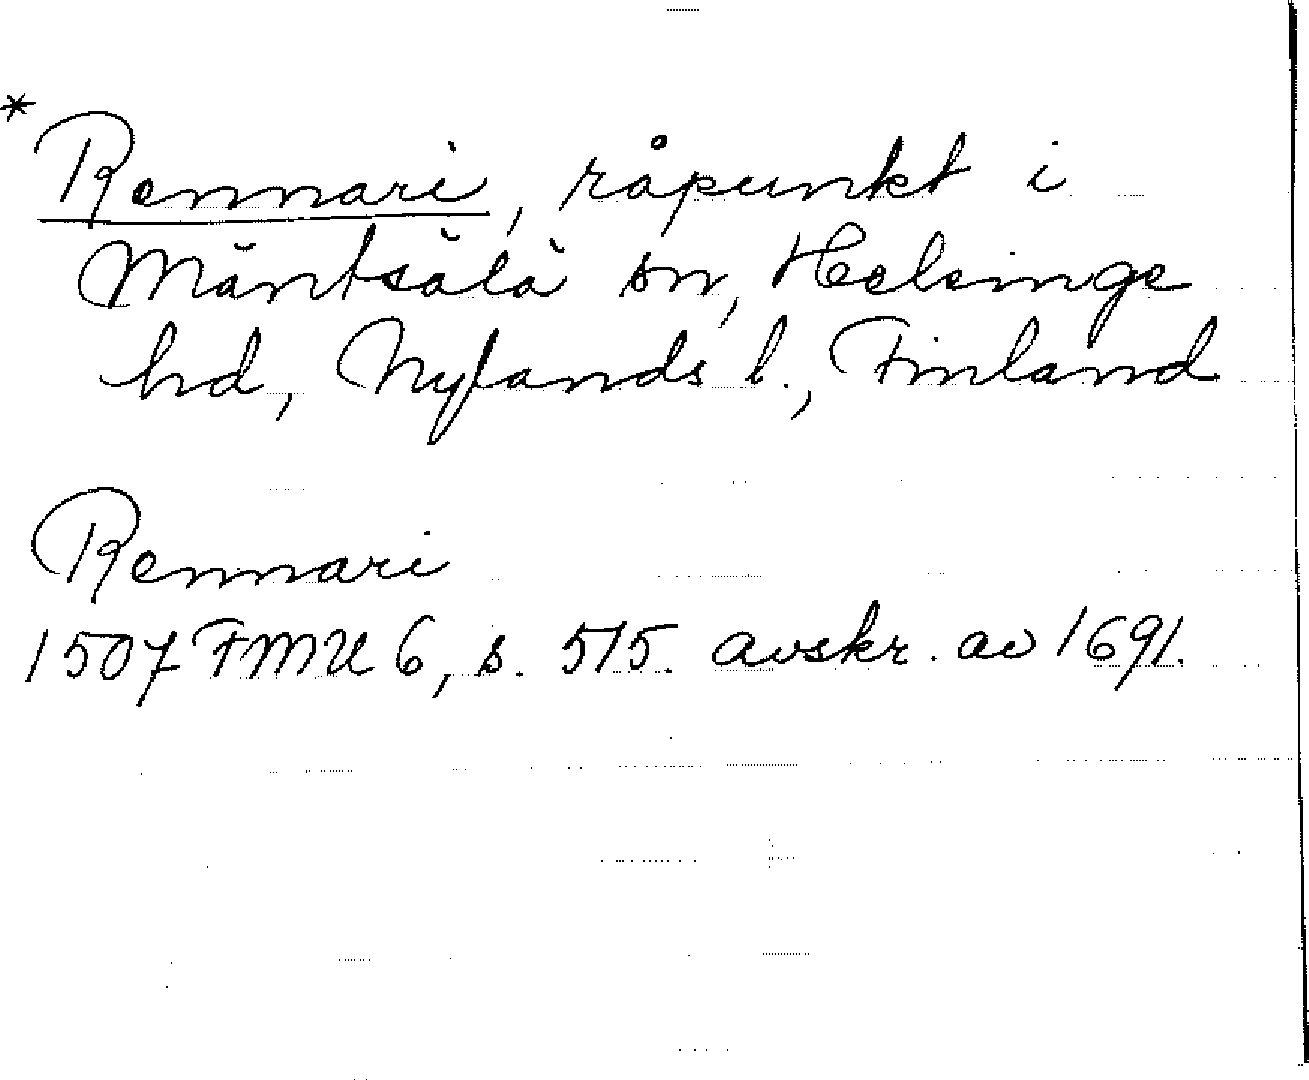 * Rennari, råpunkt i
Mäntsälä sn, Helsinge
hd, Nylands l., Finland
Rennari
1507 FMU 6, s. 515. avskr. av 1691.